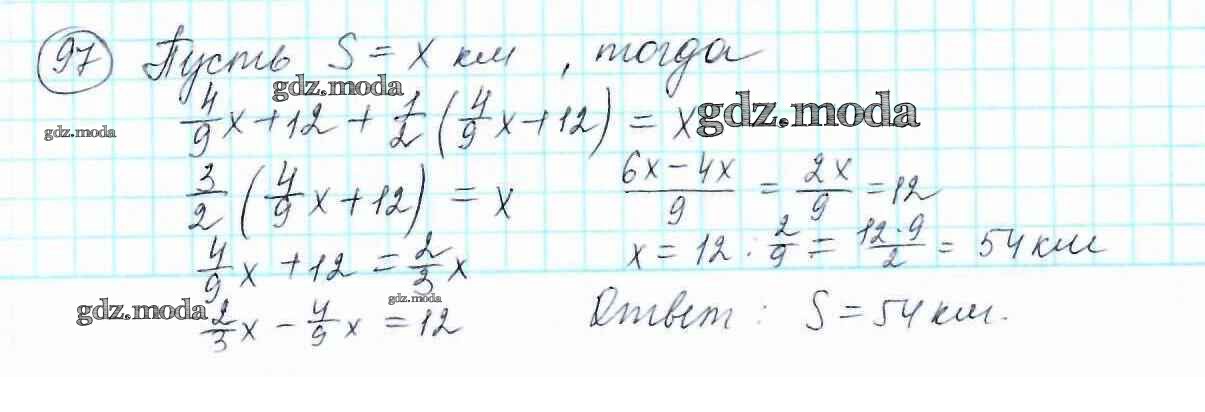 97 Пусть S = x км, тогда
gdz.moda
4/9 x + 12 + 1/2 (4/9 x + 12) = x
gdz.moda
gdz.moda
3/2 (4/9 x + 12) = x
4/9 x + 12 = 2/3 x
gdz.moda
gdz.moda
2/3 x - 4/9 x = 12
(6x - 4x)/9 = 2x/9 = 12
x = 12 : 2/9 = (12·9)/2 = 54 км
Ответ: S = 54 км.